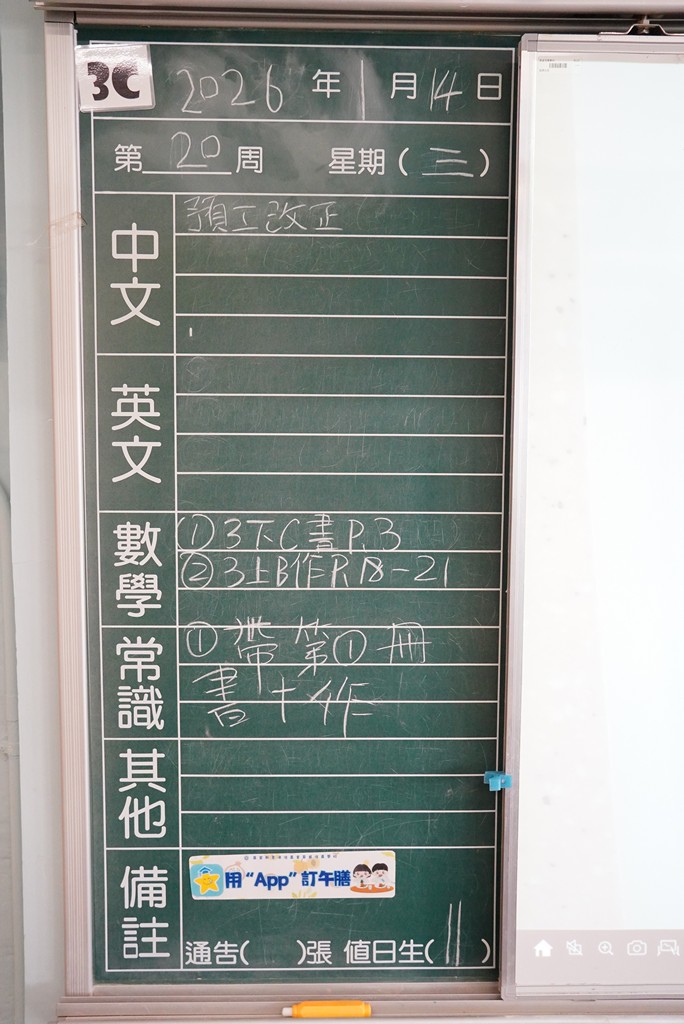 3C
2026年1月14日
第20周 星期(三)
中文
預工改正
英文
數學
①3下C書P.3
②3上B作P.18-21
常識
①帶第①冊
書+作
其他
備註
用“App”訂午膳
通告( )張 值日生(11)